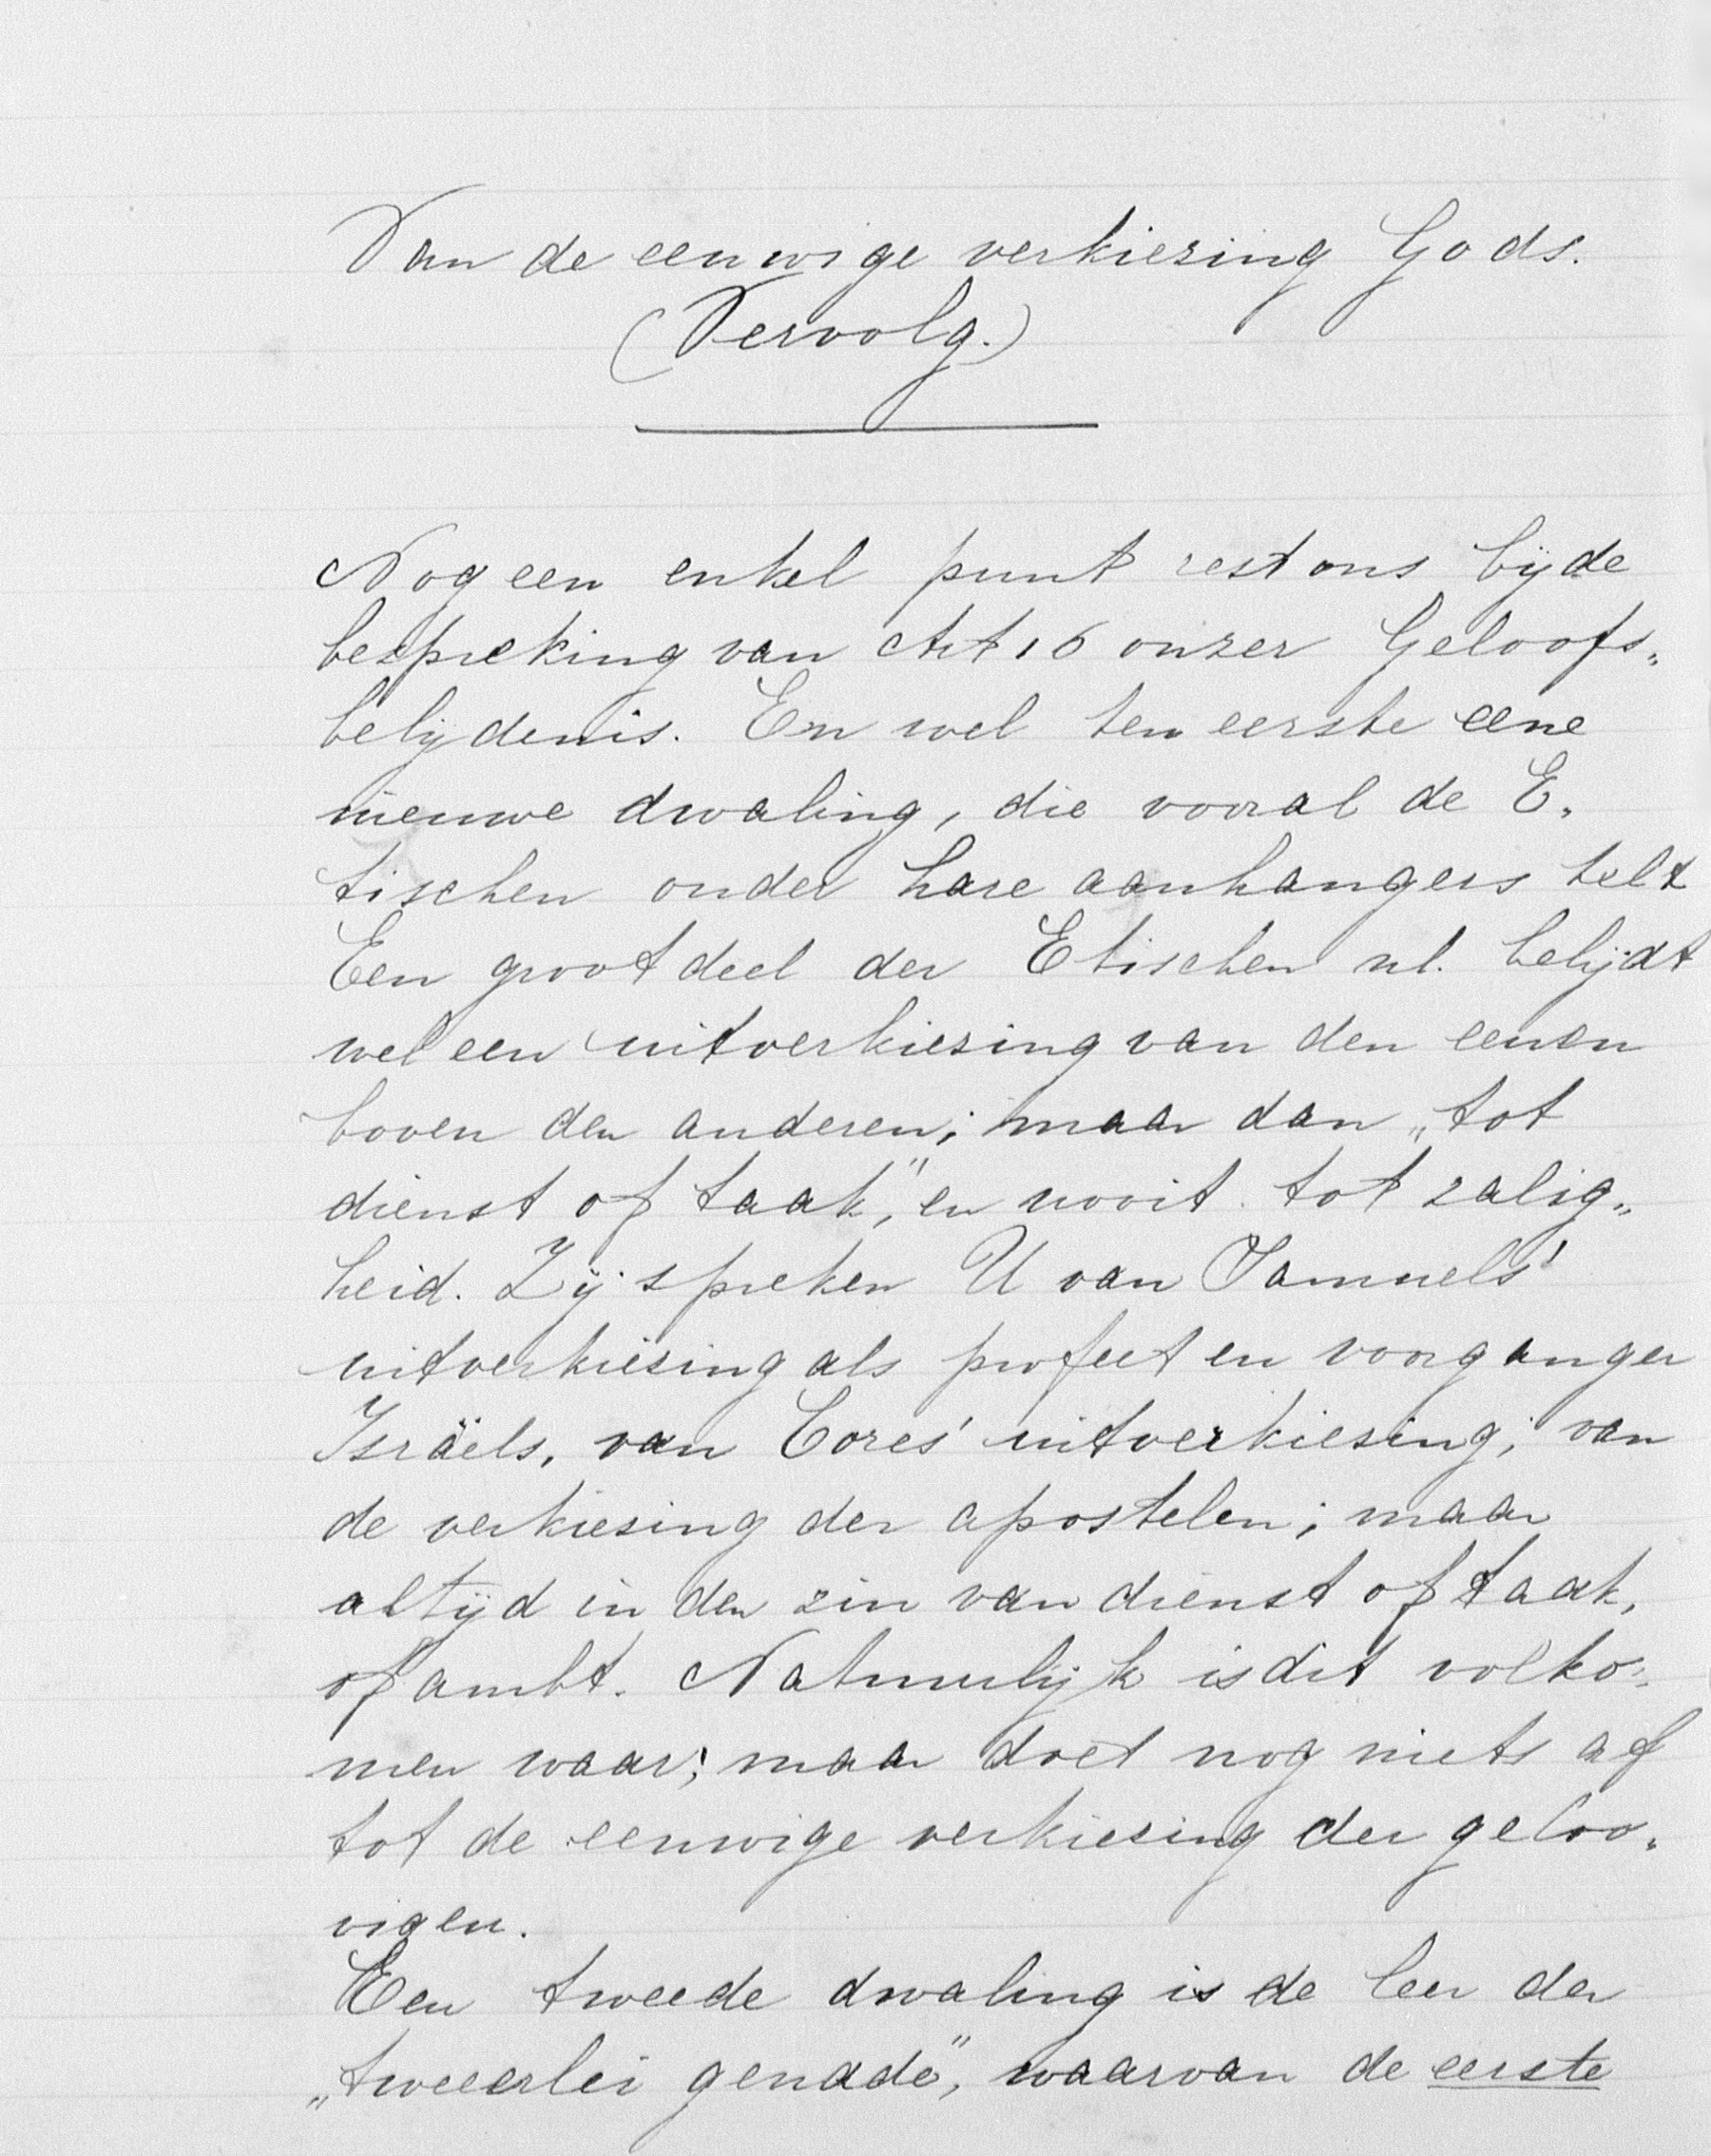 Van de eeuwige verkiezing Gods.
(Vervolg.)
Nog een enkel punt rest ons bij de
bespreking van Art 16 onzer Geloofs„
belijdenis. En wel ten eerste eene
nieuwe dwaling, die vooral de E„
tischen onder hare aanhangers telt
Een groot deel der Etischen nl. belijdt
wel een uitverkiezing van den eenen
boven den anderen; maar dan „tot
dienst of taak," en nooit tot zalig„
heid. Zij spreken U van Samuels'
uitverkiesing als profeet en voorganger
Israëls, van Cores' uitverkiesing; van
de verkiesing der apostelen; maar
altijd in den zin van dienst of taak,
of ambt. Natuurlijk is dit volko„
men waar; maar doet nog niets af
tot de eeuwige verkiesing der geloo„
vigen.
Een tweede dwaling is de leer der
„tweeerlei genade", waarvan de eerste